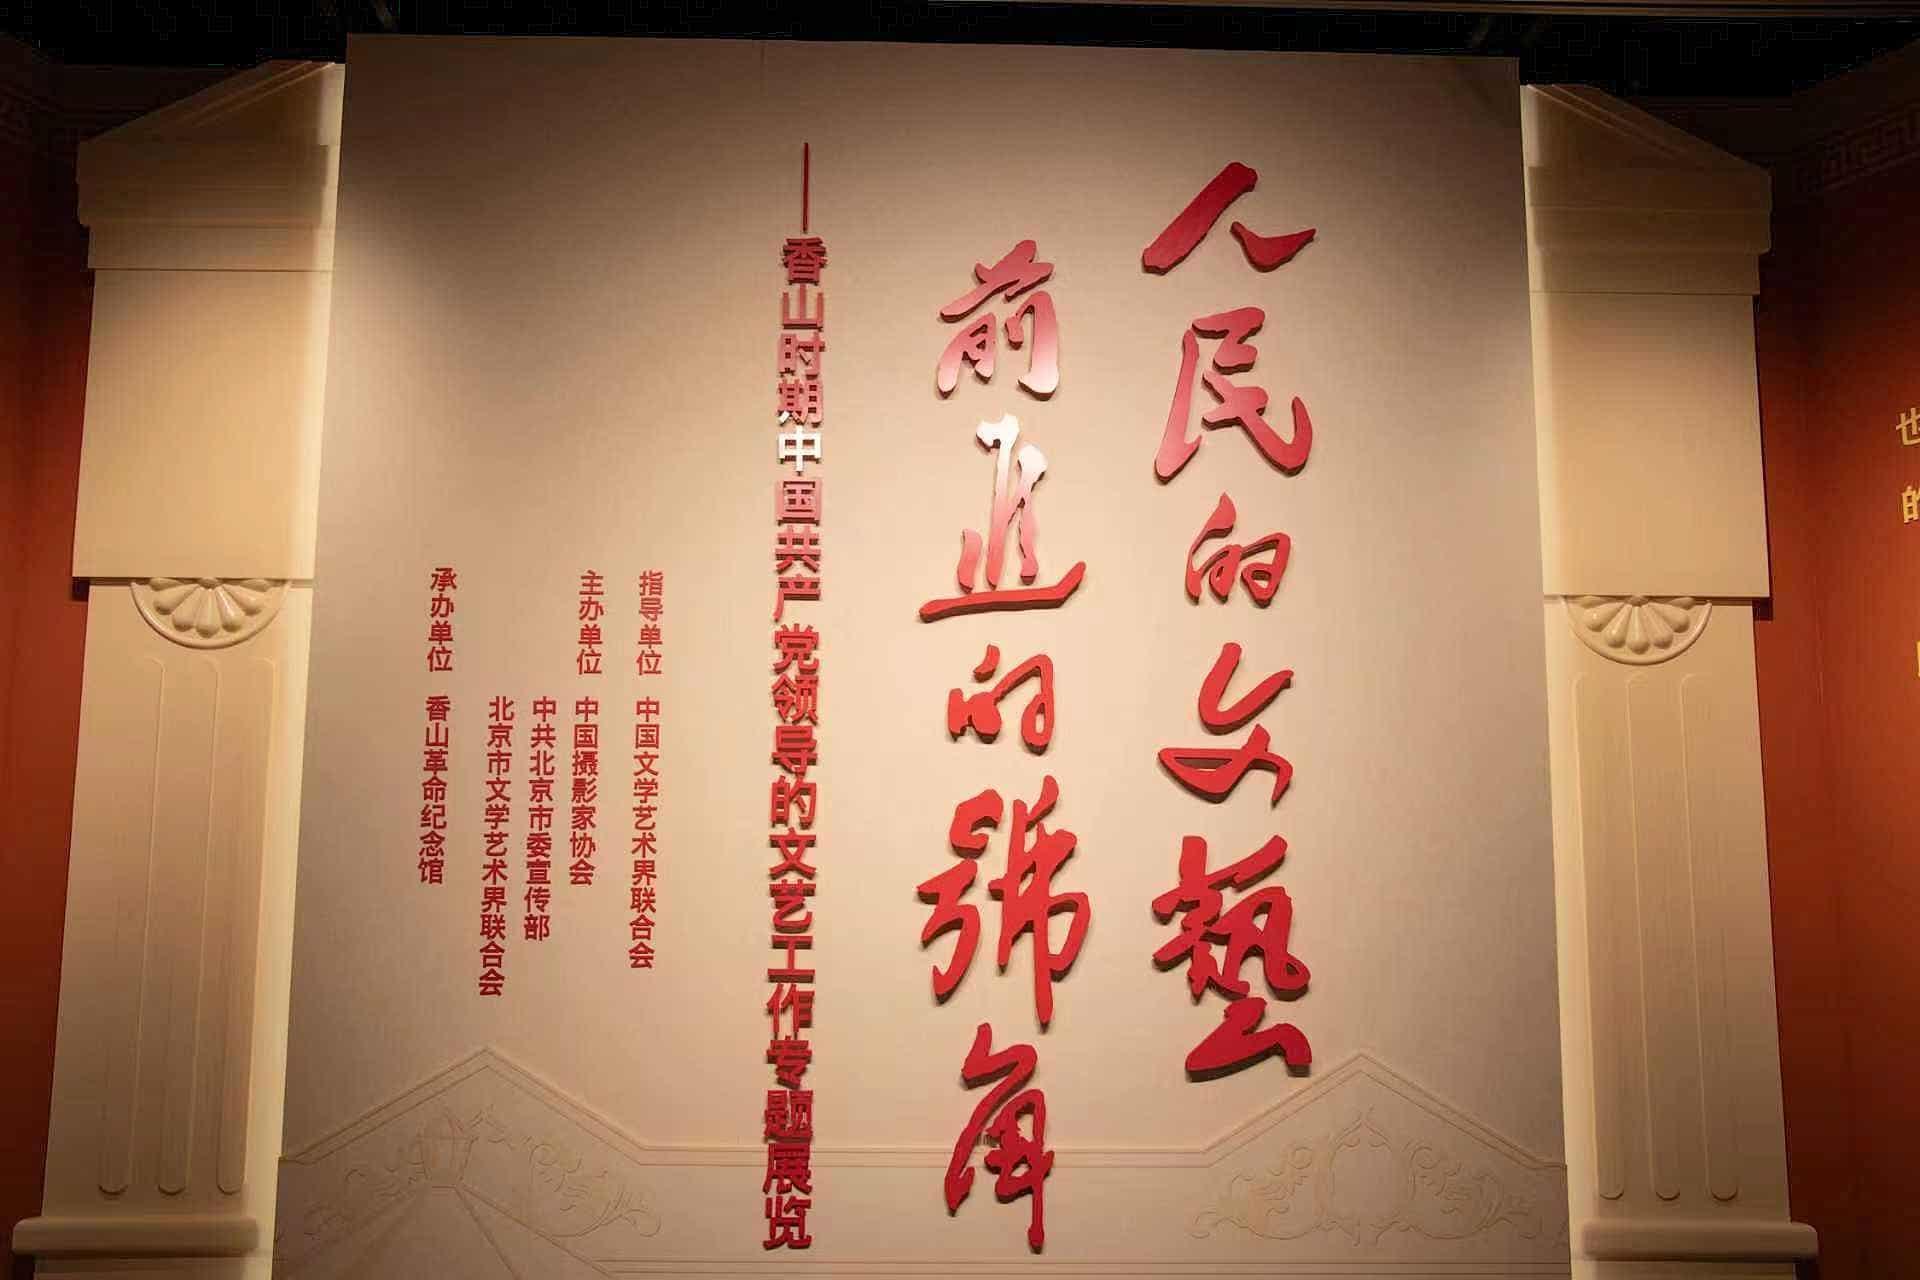 人民的文藝
前进的號角
——香山时期中国共产党领导的文艺工作专题展览
指导单位 中国文学艺术界联合会
主办单位 中国摄影家协会
中共北京市委宣传部
北京市文学艺术界联合会
承办单位 香山革命纪念馆
也
的